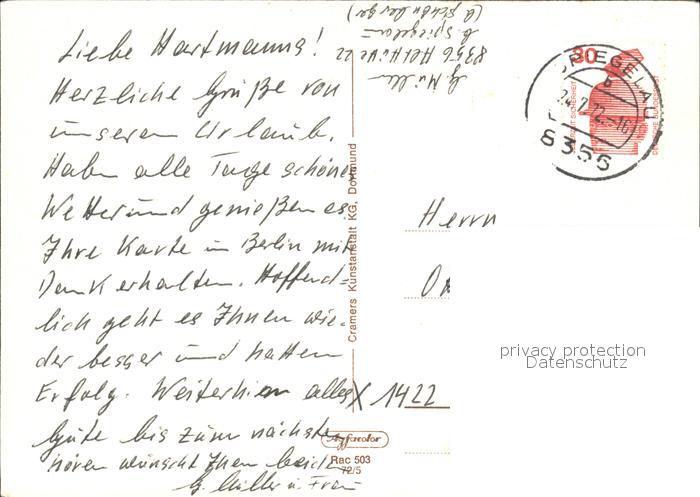 Liebe Hartmanns!
Herzliche Grüße von
unserem Urlaub.
Haben alle Tage schönes
Wetter und genießen es.
Ihre Karte in Berlin mit
Dank erhalten. Hoffend=
lich geht es Ihnen wie-
der besser und hatten
Erfolg. Weiterhin alles
Gute bis zum nächsten
hören wünscht Ihnen beide
G. Müller u. Frau
G. Müller
8356 Althütte 22
b. Spiegelau
Cramers Kunstanstalt KG, Dortmund
Agfacolor
Rac 503
72/5
80
SPIEGELAU
b
24.7.72.-16
8356
Herrn
X 1422
privacy protection
Datenschutz